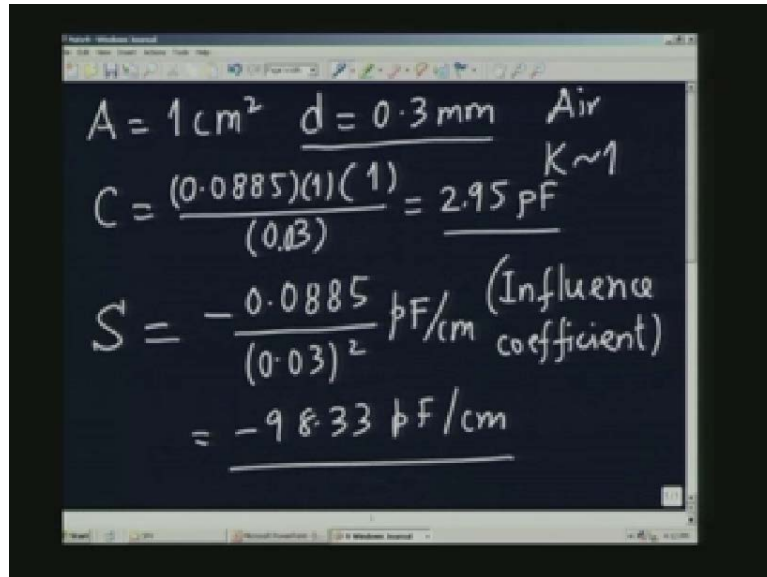 A = 1 cm² d = 0.3 mm Air
K~1
C = (0.0885)(1)(1) / (0.03) = 2.95 pF
S = - 0.0885 / (0.03)² pF/cm (Influence coefficient)
= -98.33 pF/cm